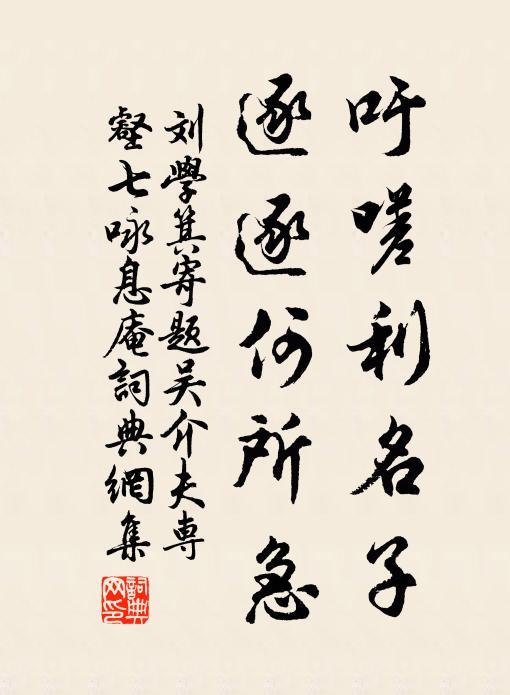 吁嗟利名子
逐逐何所急
刘學箕寄題吴介夫専
壑七咏息庵詞典網集
詞典網印